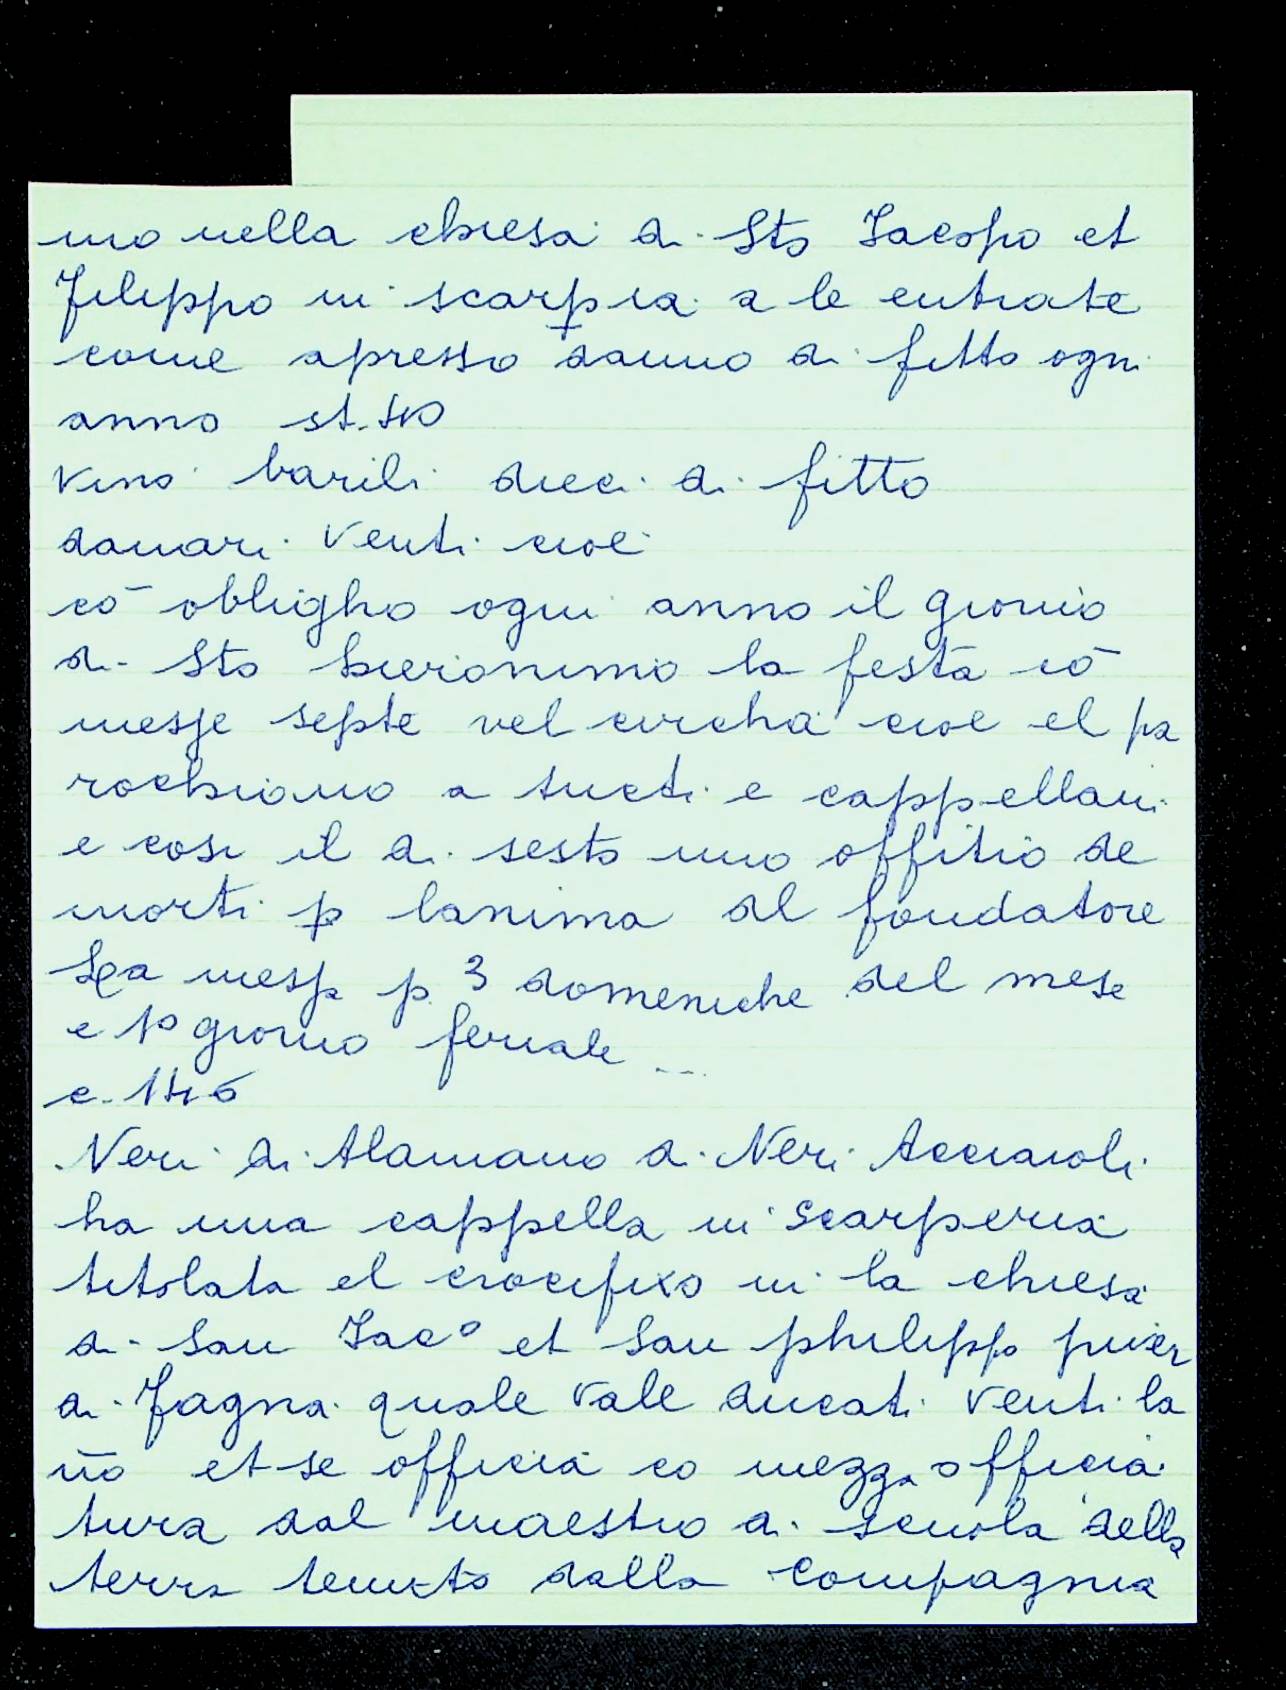 mo nella chiesa di Sto Jacopo et
Filippo in scarpia a le entrate
come apresso danno di fitto ogni
anno st. 40
vino barili dieci di fitto
danari venti cioè
cō obbligho ogni anno il giorno
di Sto hieronimo la festa cō
messe septe vel circha cioe el pa
rochiano a tucti e cappellani
e cosi il di sesto uno offitio de
morti p lanima del fondatore
messa p. 3 domeniche del mese
e 1º giorno feriale ...
c. 146
Neri di Alamano di Neri Acciaioli
ha una cappella in scarperia
titolata el crocifixo in la chiesa
di San Jacº et San philippo
di Fagna quale vale ducati venti la
ño et se officia co mezza officia
tura dal maestro di scuola della
terra tenuto dalla compagnia